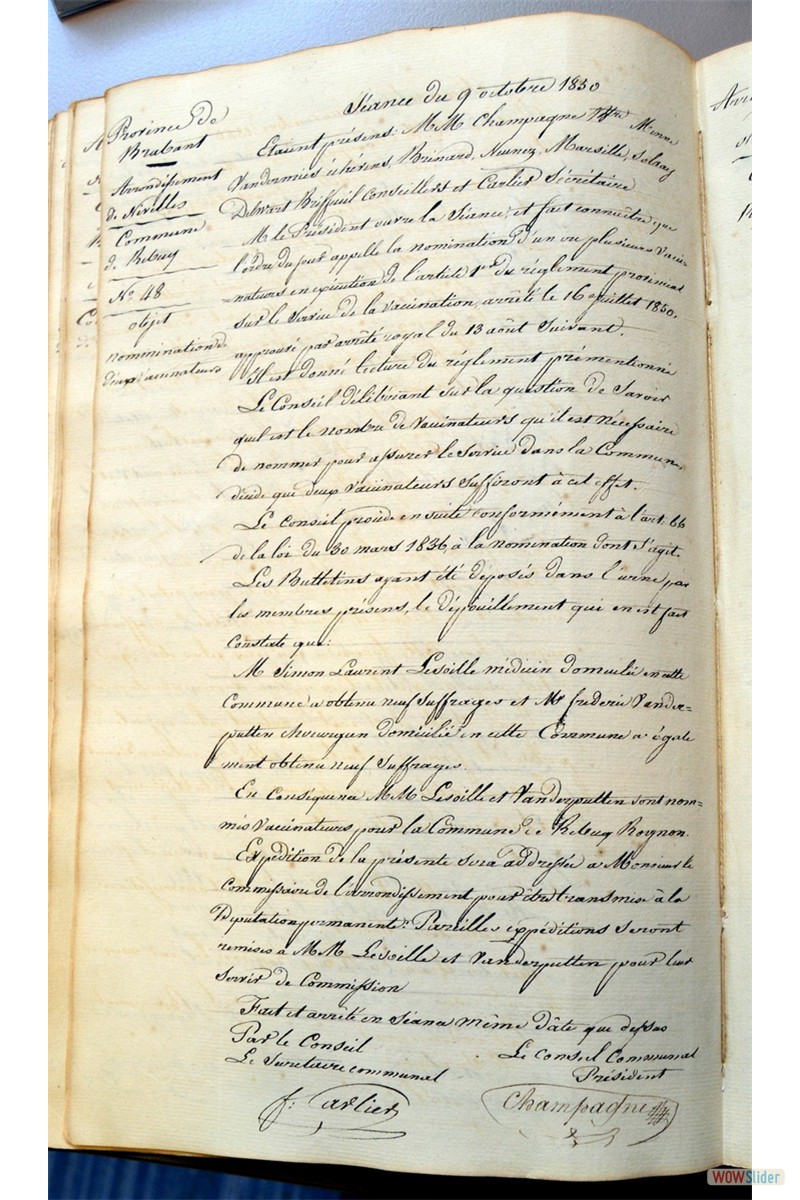 Séance du 9 octobre 1850
Province de
Brabant
Arrondissement
de Nivelles
Commune
de Rebecq
No 48
objet
nomination de
deux vaccinateurs
Etaient présens: MM Champagne
Vandermies échevins, Brinard, Nunez, Marseille,
Delwart Briffeuil Conseillers et Carlier Sécrétaire
M le Président ouvre la Séance, et fait connaître que
l'ordre du jour appelle la nomination d'un ou plusieurs Vacci-
=nateurs en exécution de l'article 1er du réglement provincial
sur le Service de la vaccination, arrêté le 16 juillet 1850,
approuvé par arrêté royal du 13 août Suivant.
Il est donné lecture du réglement prémentionné
Le Conseil délibérant sur la question de Savoir
quel est le nombre de Vaccinateurs qu'il est Nécessaire
de nommer pour assurer le Service dans la Commune,
décide que deux vaccinateurs Suffiront à cet effet.
Le Conseil procède ensuite conformément à l'art. 66
de la loi du 30 mars 1836, à la nomination dont S'agit.
Les Bulletins ayant été déposés dans l'urne par
les membres présens, le dépouillement qui en est fait
Constate que:
M Simon Laurent Lesoille médecin domicilié en cette
Commune a obtenu neuf Suffrages et Mr frederic Vander=
putten chirurgien domicilié en cette Commune a égale
ment obtenu neuf Suffrages.
En Conséquence MM Lesoille et Vanderputten sont nom=
més Vaccinateurs pour la Commune de Rebecq Rognon.
Expédition de la présente sera addressée a Monsieur le
Commissaire de l'arrondissement pour être transmise à la
Députation permanente. Pareilles expéditions Seront
remises à MM Lesoille et Vanderputten pour leur
Servir de Commission
Fait et arrêté en Séance même Dâte que dessus
Par le Conseil
Le Secretaire communal
Le Conseil Communal
Président
f: Carlier
Champagne
WOWSlider